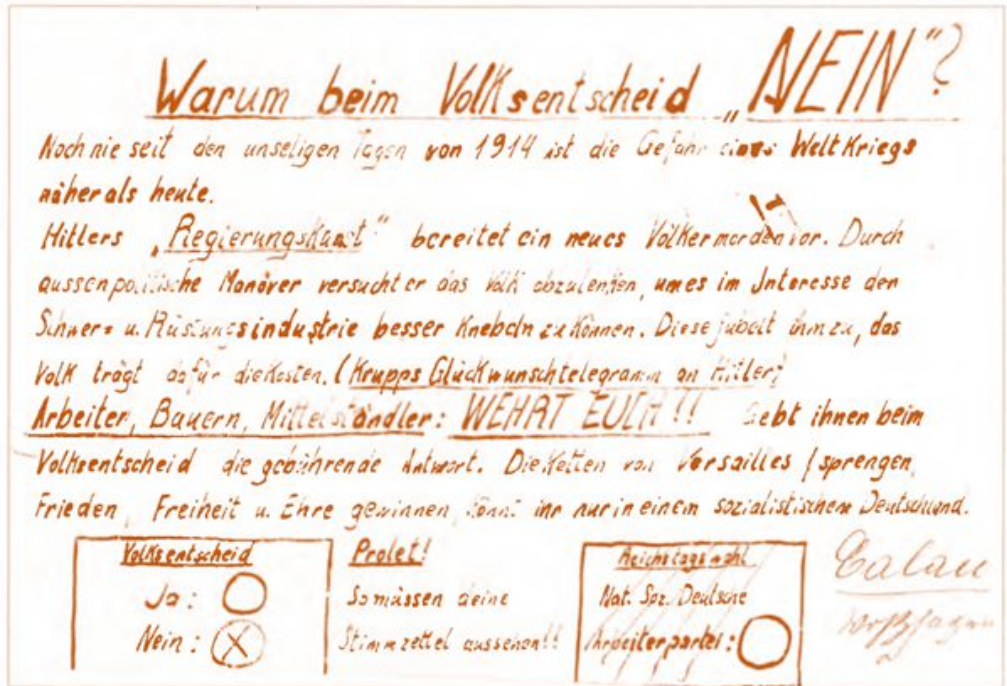 Warum beim Volksentscheid „NEIN"?
Noch nie seit den unseligen Tagen von 1914 ist die Gefahr eines Weltkriegs
näher als heute.
Hitlers „Regierungskunst" bereitet ein neues Völkermorden vor. Durch
aussenpolitische Manöver versucht er das Volk abzulenken, um es im Interesse der
Schwer= u. Rüstungsindustrie besser knebeln zu können. Diese jubelt ihm zu, das
Volk trägt dafür die Kosten. (Krupps Glückwunschtelegramm an Hitler)
Arbeiter, Bauern, Mittelständler: WEHRT EUCH!! Gebt ihnen beim
Volksentscheid die gebührende Antwort. Die Ketten von Versailles sprengen,
Frieden, Freiheit u. Ehre gewinnen, könnt ihr nur in einem sozialistischem Deutschland.
Volksentscheid
Ja:
Nein: X
Prolet!
So müssen deine
Stimmzettel aussehen!!
Reichstagswahl
Nat. Soz. Deutsche
Arbeiterpartei:
Calau